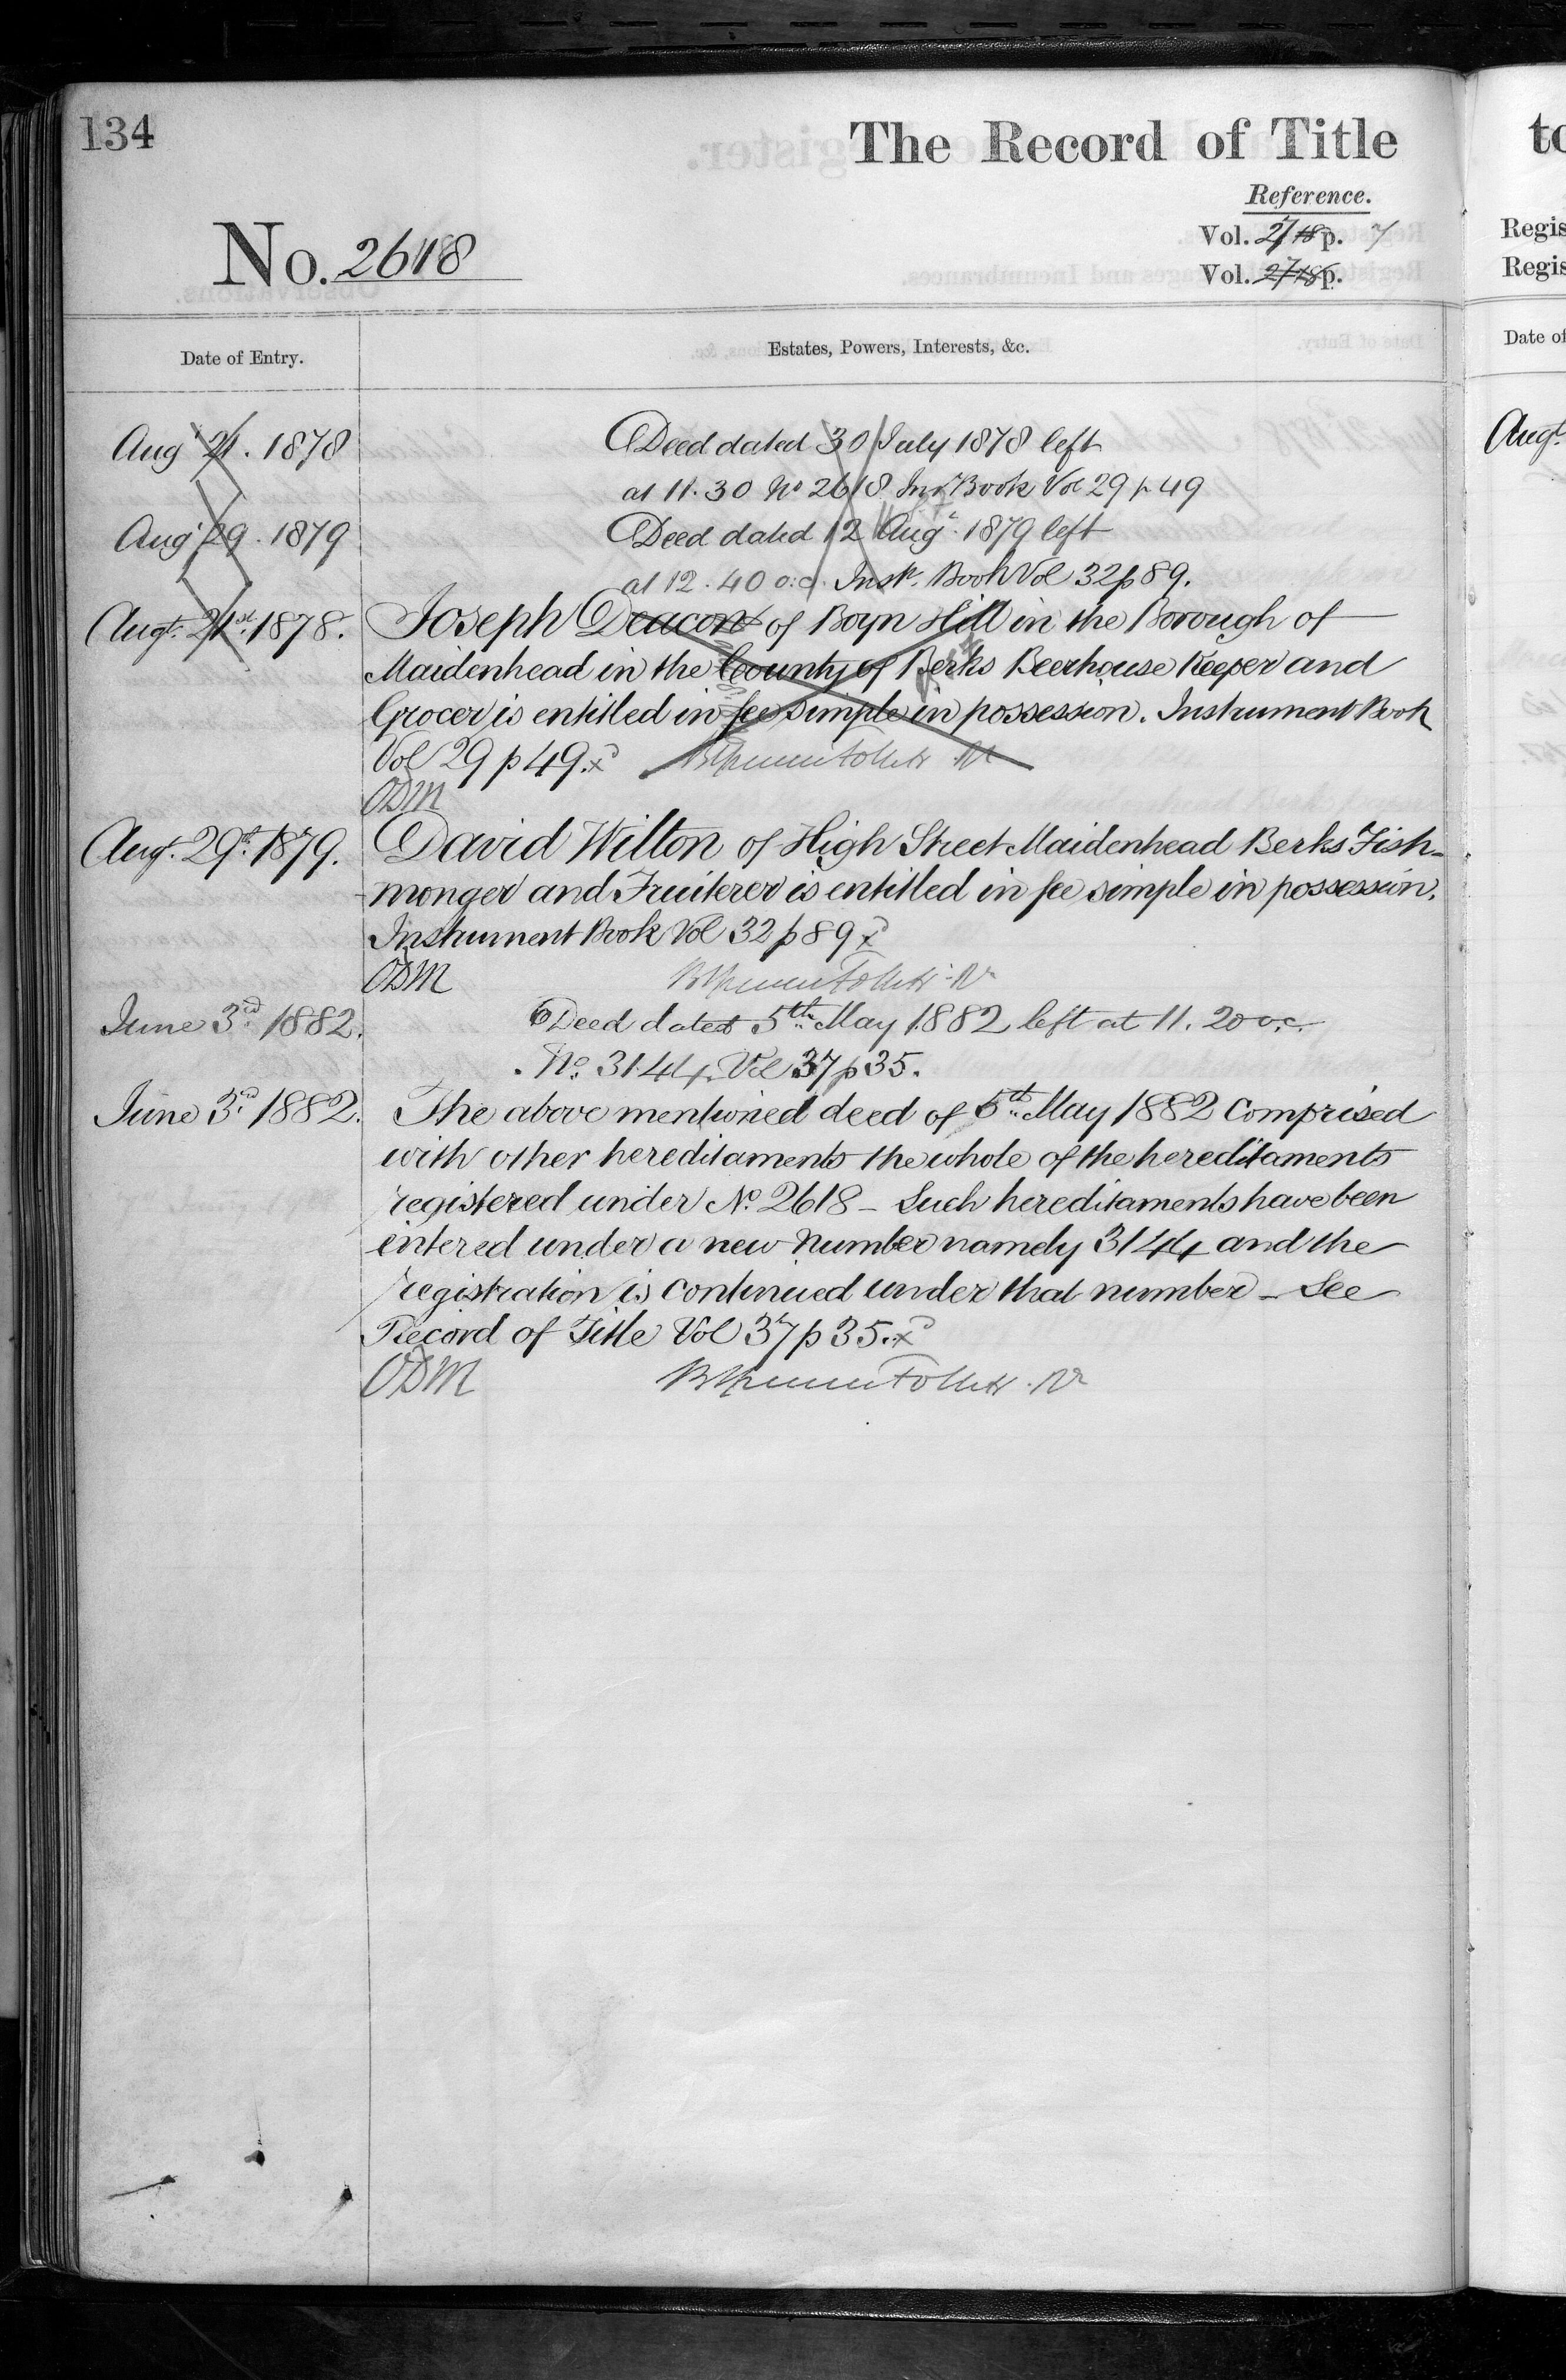 134
The Record of Title
to
Reference.
Vol. 27 18 p. 7
Regis
No. 2618
Vol. 27 18 p.
Regis
Date of Entry.
Estates, Powers, Interests, &c.
Date of
Augt 21. 1878
Deed dated 30 July 1878 left
Augt.
at 11.30 No 2618 Inst Book Vol 29 p 49
Augt 29. 1879
Deed dated 12 Augt. 1879 left
at 12.40 o.c. Instt. Book Vol 32 p 89.
Augt. 21st. 1878.
Joseph Deacon of Boyn Hill in the Borough of
Maidenhead in the County of Berks Beerhouse Keeper and
Grocer is entitled in fee simple in possession. Instrument Book
Vol 29 p 49. xd
ODM
Augt. 29th. 1879.
David Wilton of High Street Maidenhead Berks Fish-
monger and Fruiterer is entitled in fee simple in possession.
Instrument Book Vol 32 p 89 xd
ODM
June 3rd 1882.
Deed dated 5th May 1882 left at 11.20 o.c.
No. 3144. Vol 37 p 35.
June 3rd 1882.
The above mentioned deed of 5th May 1882 comprised
with other hereditaments the whole of the hereditaments
registered under No. 2618 – Such hereditaments have been
entered under a new number namely 3144 and the
registration is continued under that number – See
Record of Title Vol 37 p 35. xd
ODM